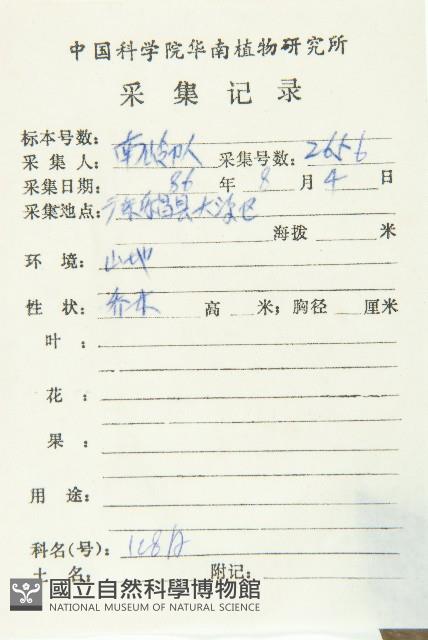 中国科学院华南植物研究所
采集记录
标本号数:
采集人: 南岭 人 采集号数: 2656
采集日期: 86 年 8 月 4 日
采集地点: 广东乐昌县大 区
海拨 米
环境: 山地
性状: 乔木 高 米; 胸径 厘米
叶:
花:
果:
用途:
科名(号): 108A
土名: 附记:
國立自然科學博物館
NATIONAL MUSEUM OF NATURAL SCIENCE